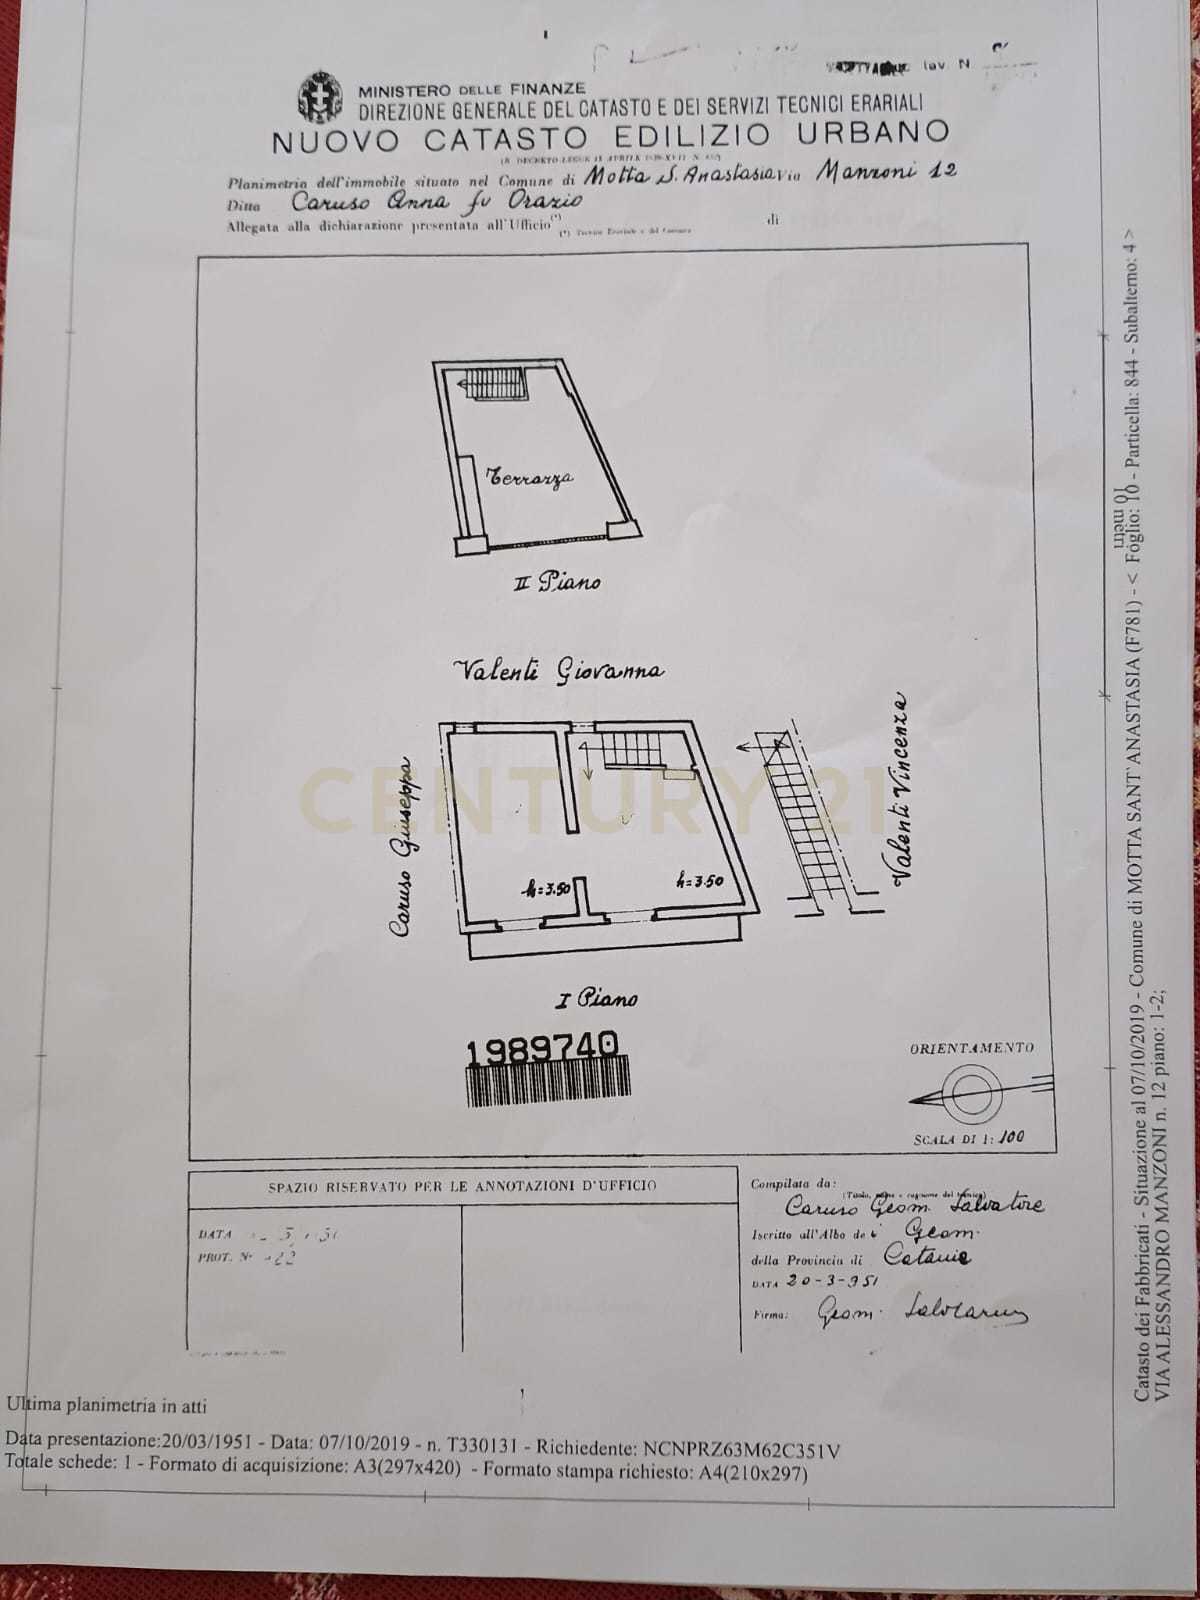 lav. N
MINISTERO DELLE FINANZE
DIREZIONE GENERALE DEL CATASTO E DEI SERVIZI TECNICI ERARIALI
NUOVO CATASTO EDILIZIO URBANO
Planimetria dell'immobile situato nel Comune di Motta S. Anastasia Via Manzoni 12
Ditta Caruso Anna fu Orazio
Allegata alla dichiarazione presentata all'Ufficio(*) di
Terrazza
II Piano
Valenti Giovanna
Caruso Giuseppa
Valenti Vincenza
CENTURY 21
h=3.50 h=3.50
I Piano
1989740
ORIENTAMENTO
SCALA DI 1:100
SPAZIO RISERVATO PER LE ANNOTAZIONI D'UFFICIO
DATA
PROT. N°
Compilata da:
(Titolo, nome e cognome del tecnico)
Caruso Geom. Salvatore
Iscritto all'Albo de i Geom.
della Provincia di Catania
DATA 20-3-951
Firma: Geom.
Ultima planimetria in atti
Data presentazione:20/03/1951 - Data: 07/10/2019 - n. T330131 - Richiedente: NCNPRZ63M62C351V
Totale schede: 1 - Formato di acquisizione: A3(297x420) - Formato stampa richiesto: A4(210x297)
10 metri
Catasto dei Fabbricati - Situazione al 07/10/2019 - Comune di MOTTA SANT' ANASTASIA (F781) - < Foglio: 10 - Particella: 844 - Subalterno: 4 >
VIA ALESSANDRO MANZONI n. 12 piano: 1-2;